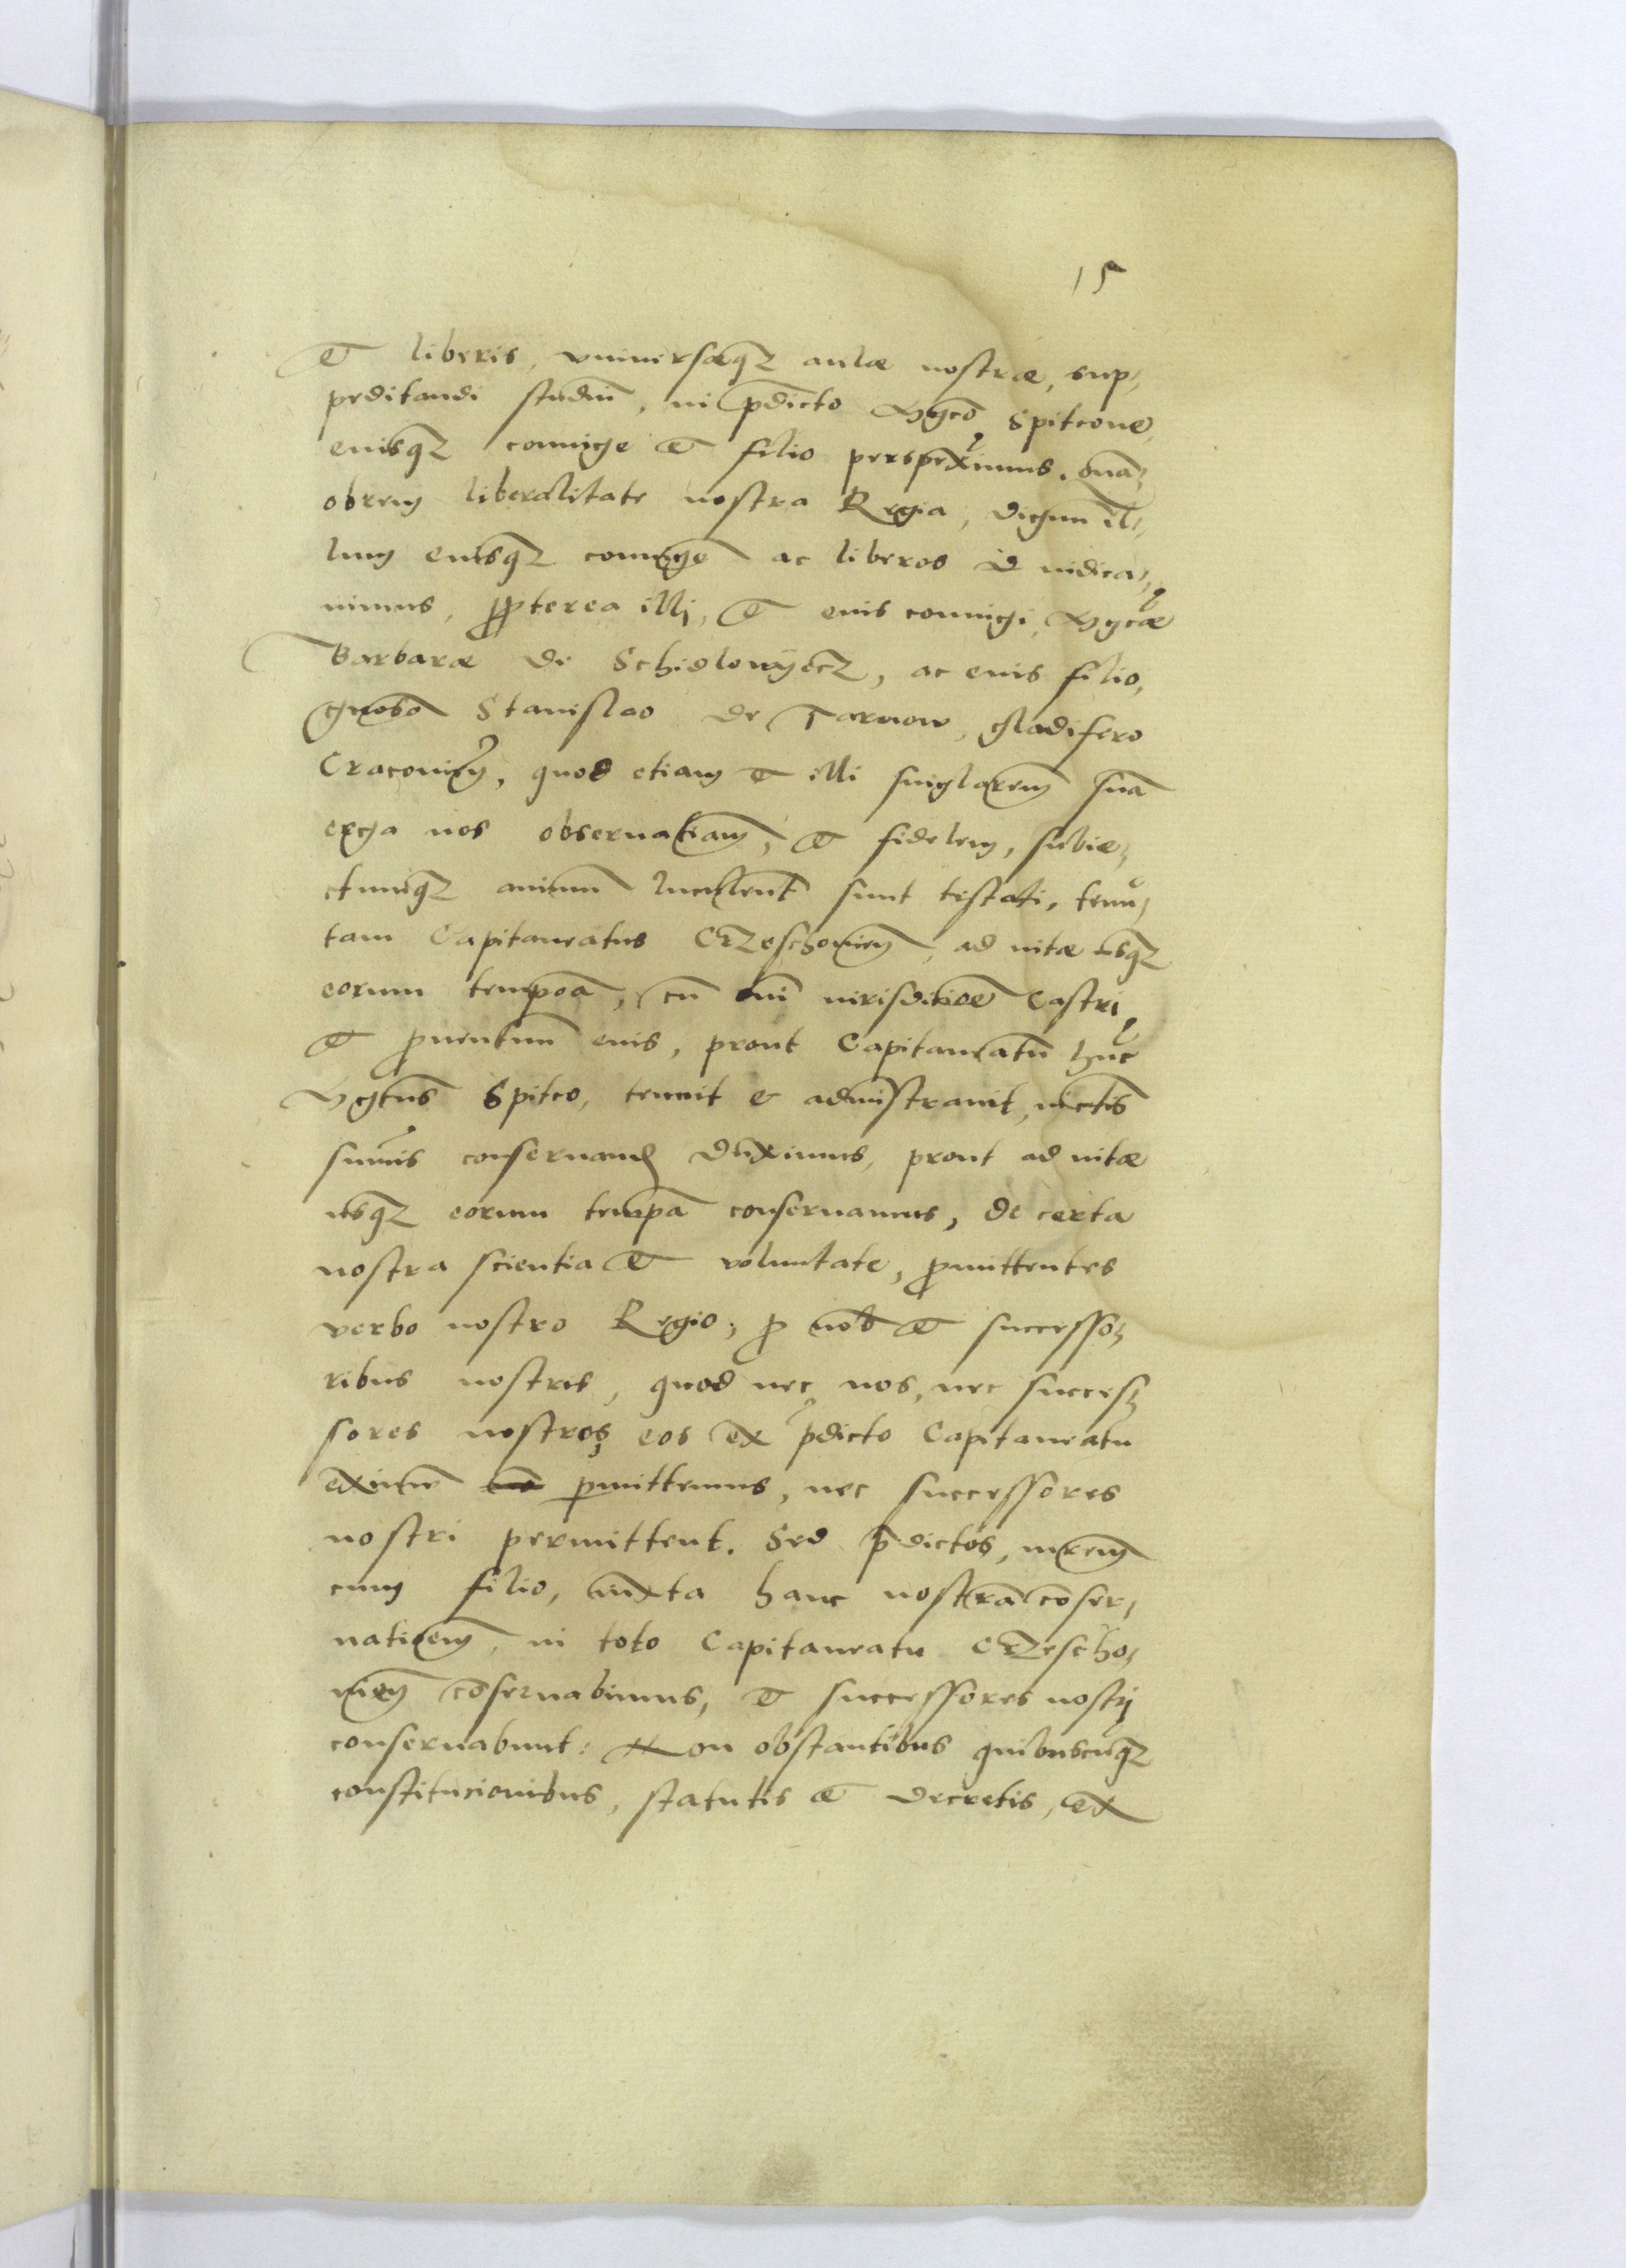 15
et liberis, vniuersæq₃ aulæ nostræ, sup⸗
peditandi studiũ, in p̄dicto Mg̃co Spitcone
eiusq₃ coniuge et filio perspeximus. Quã⸗
obrem liberalitate nostra Regia, dignum il⸗
lum eiusq₃ coniugẽ ac liberos iudica⸗
uimus, ꝓpterea illi, et eius coniugi Mg̃cæ
Barbaræ de Schidlowyecz, ac eius filio,
gñoso Stanislao de Tarnow, gladifero
Cracovieñ, quod etiam et illi singlarem suã
erga nos obseruatiam, et fidelem, subie⸗
ctumq₃ animũ luculent̃ sunt testati, tenu⸗
tam Capitaneatus Crzeschovieñ, ad vitæ usq₃
eorum tempoã, cũ oñi iurisditioẽ Castri
et ꝓuentuum eius, prout Capitaneatũ hũc
Mg̃cus Spitco, tenuit et administrauit,
sumus conseruand duximus, prout ad vitæ
usq₃ eorum tempã conseruamus, de certa
nostra scientia et voluntate, ꝓmittentes
verbo nostro Regio, ꝓ nob̃ et successo⸗
ribus nostris, quod nec nos, nec succes⸗
sores nostros eos ex p̄dicto Capitaneatu
ꝑmittemus, nec successores
nostri permittent. Sed p̄dictos, uxorem
cum filio, iuxta hanc nostrã cõser⸗
uationem, in toto Capitaneatu Crzescho⸗
uieñ cõseruabimus, et successores nostri
conseruabunt: Non obstantibus quibuscũq₃
constitucionibus, statutis et decretis, ex